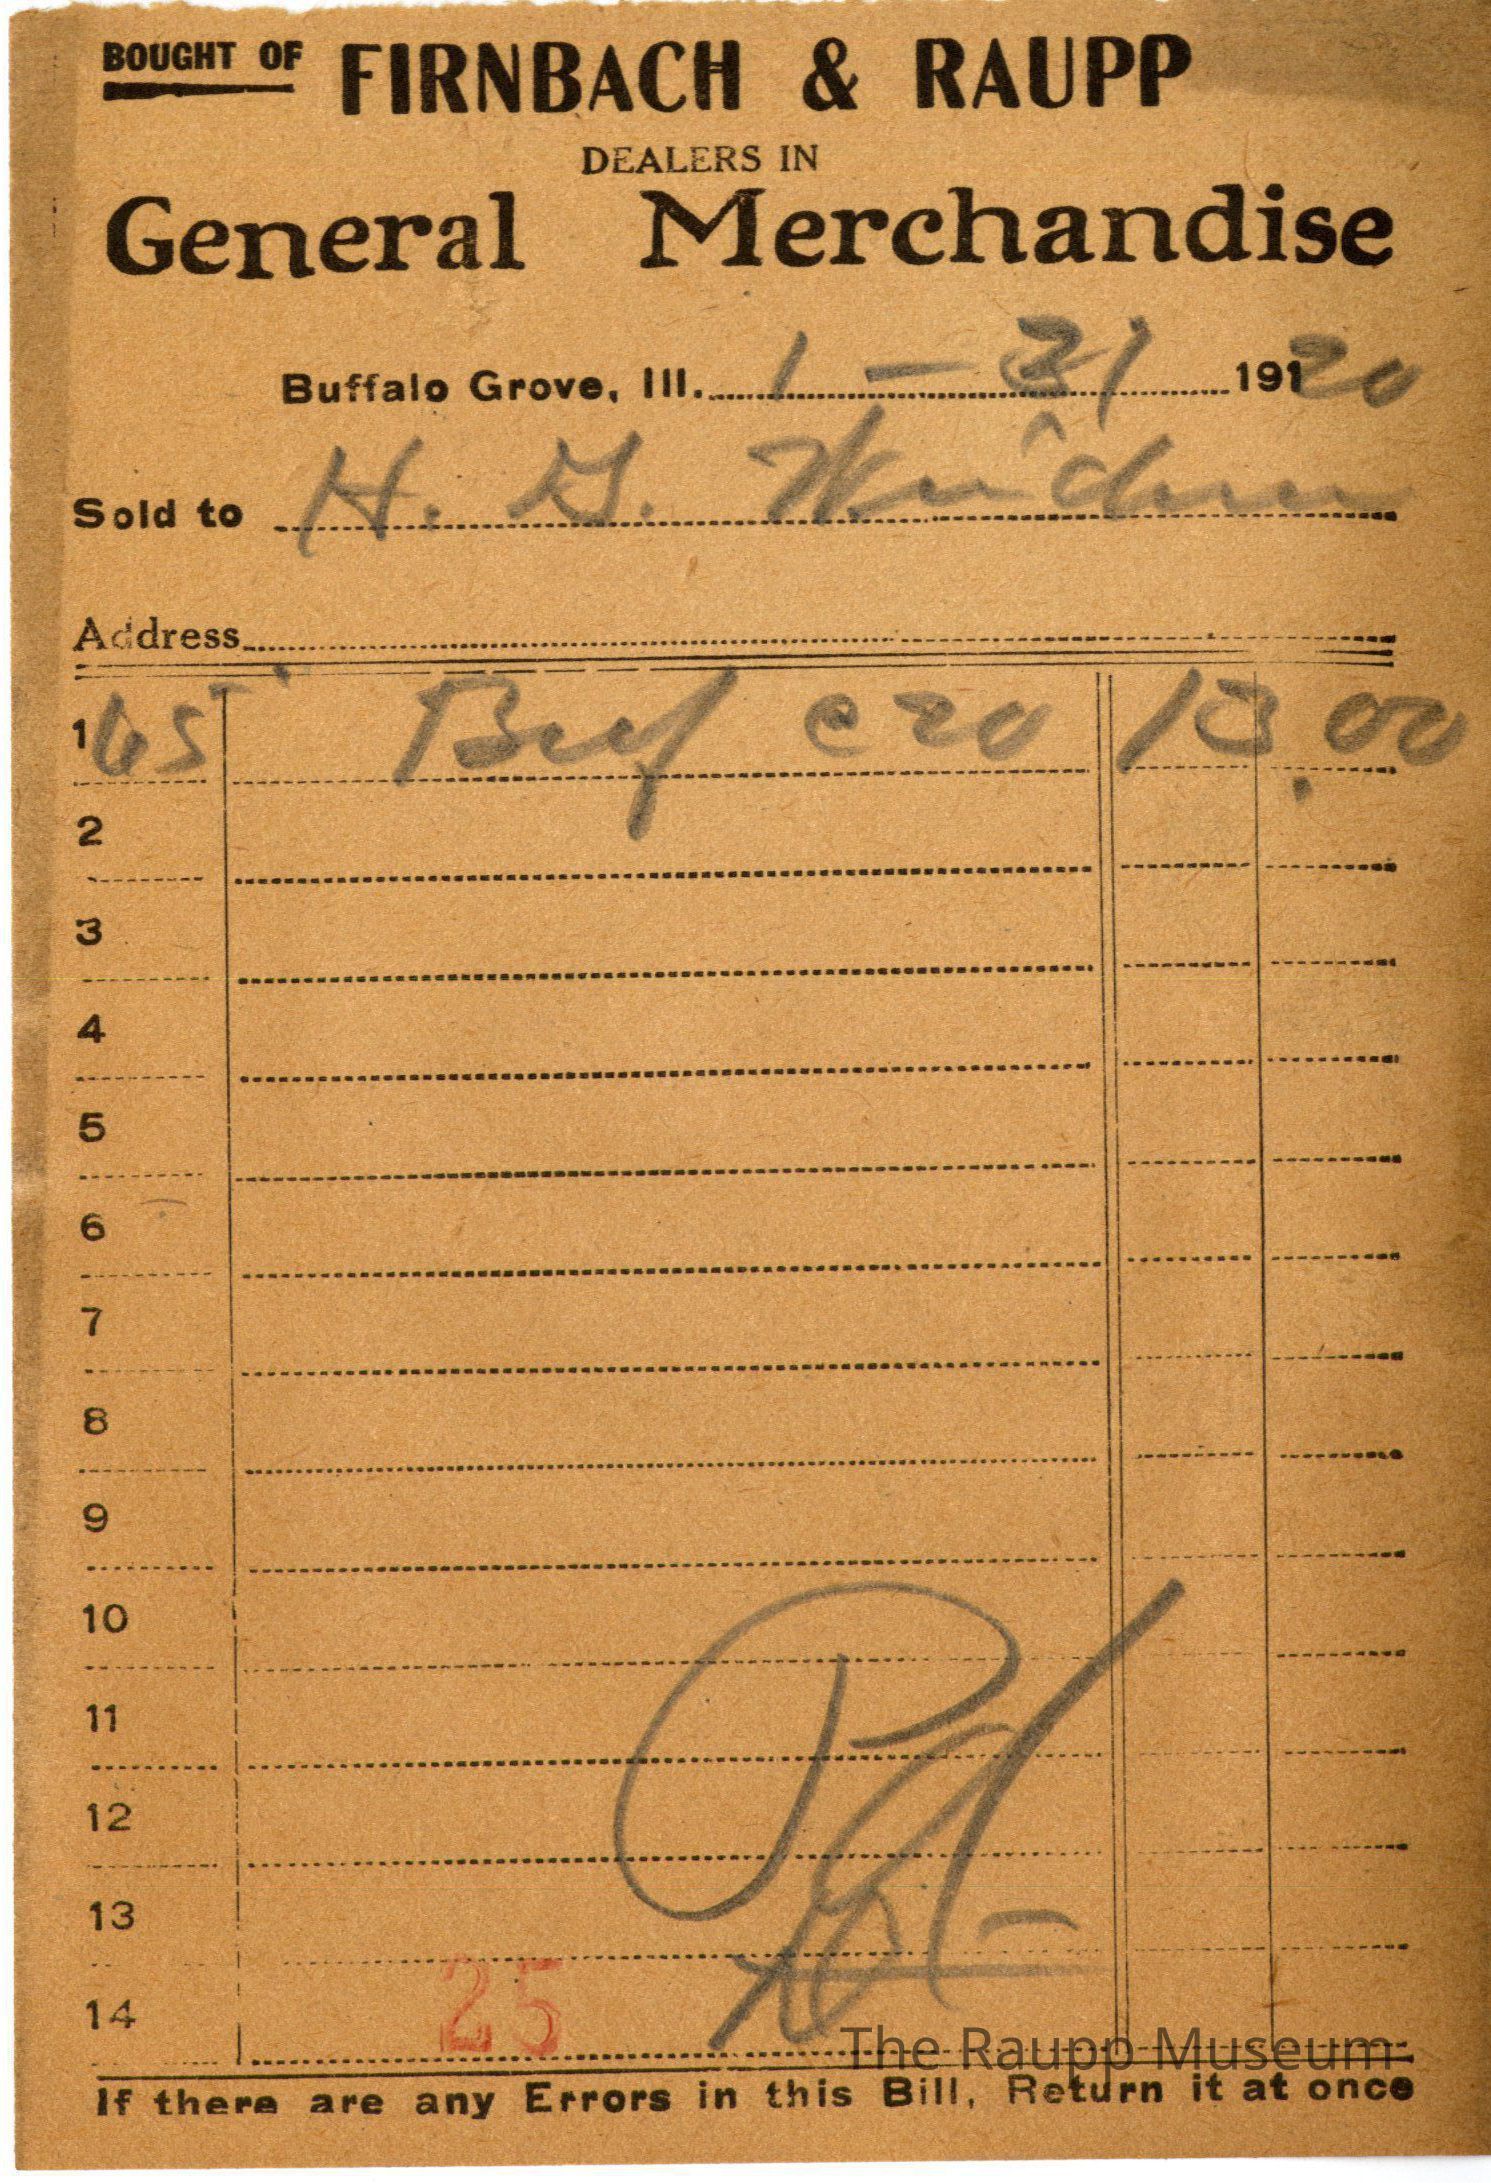 BOUGHT OF FIRNBACH & RAUPP
DEALERS IN
General Merchandise
Buffalo Grove, Ill. 1 – 31 191 20
Sold to H. G.
Address
1 65 Beef c 20 13.00
2
3
4
5
6
7
8
9
10
11
12
13
14 25
The Raupp Museum
If there are any Errors in this Bill, Return it at once